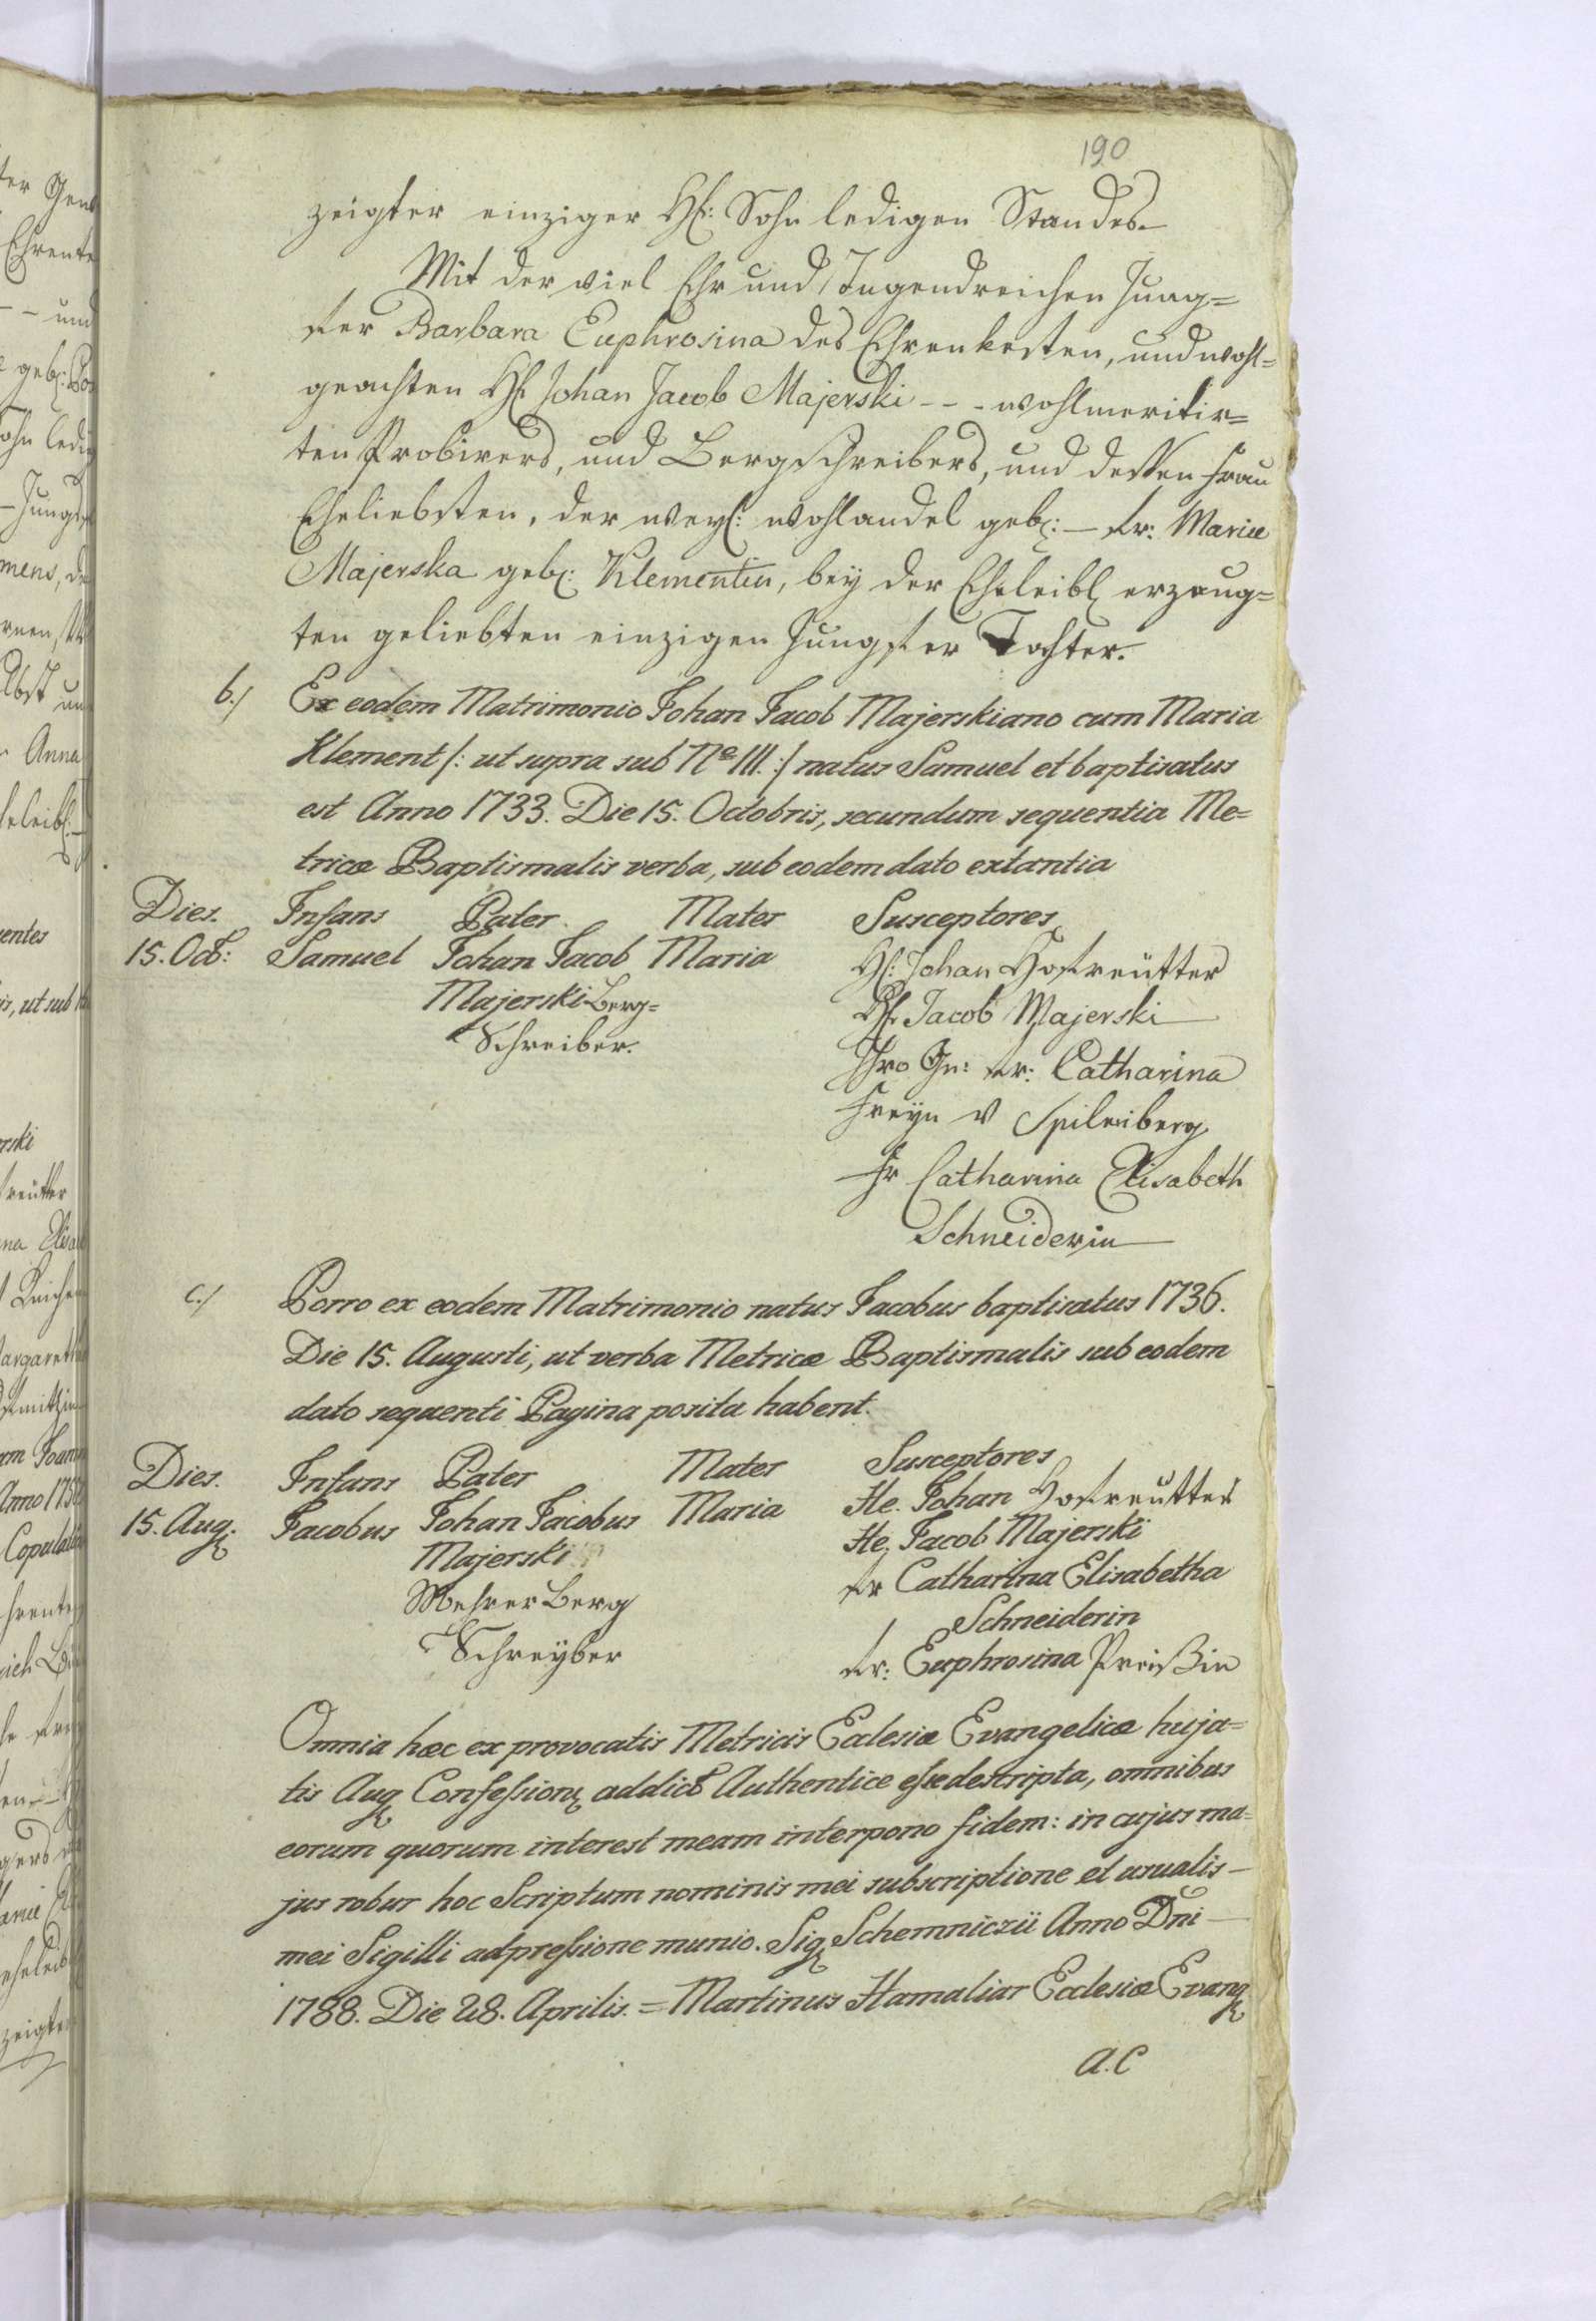 190
zeigter einziger H: Sohn ledigen Standes.
Mit der viel Ehr und Tugendreichen Jung=
fer Barbara Euphrosina des Ehrenvesten, und wohl=
geachten H Johan Jacob Majerski - - - wohlmeritir=
ten Probirers, und Bergschreibers, und dessen Frau
Eheliebsten, der weyl: wohlandel geb: — Fr: Mariæ
Majerska geb: Klementin, bey der Eheleibl erzeug=
ten geliebten einzigen Jungfer Tochter.
b./ Ex eodem Matrimonio Johan Jacob Majerskiano cum Maria
Klement /: ut supra sub No III. :/ natus Samuel et baptisatus
est Anno 1733. Die 15. Octobris, secundum sequentia Me=
tricæ Baptismalis verba, sub eodem dato extantia
Dies. Infans Pater. Mater Susceptores
15. Oct: Samuel Johan Jacob Maria H: Johan Hofreütter
Majerski Berg= H Jacob Majerski
Schreiber. Ihro Gn: Fr: Catharina
Freyin v Spilenberg
Fr Catharina Elisabeth
Schneiderin
c./ Porro ex eodem Matrimonio natus Jacobus baptisatus 1736.
Die 15. Augusti, ut verba Metricæ Baptismalis sub eodem
dato sequenti Pagina posita habent.
Dies. Infans Pater Mater Susceptores
15. Aug. Jacobus Johan Jacobus Maria He. Johan Hofreutter
Majerski He. Jacob Majerski
Berg Fr Catharina Elisabetha
Schreyber Schneiderin
Fr: Euphrosina Preißin
Omnia hæc ex provocatis Metricis Eclesiæ Evangelicæ huja=
tis Aug Confession addict Authentice esse descripta, omnibus
eorum quorum interest meam interpono fidem: in cujus ma=
jus robur hoc Scriptum nominis mei subscriptione et usualis —
mei Sigilli adpressione munio. Sig Schemniczii Anno Dni —
1788. Die 28. Aprilis. = Martinus Hamaliar Ecclesiæ Evang
A. C